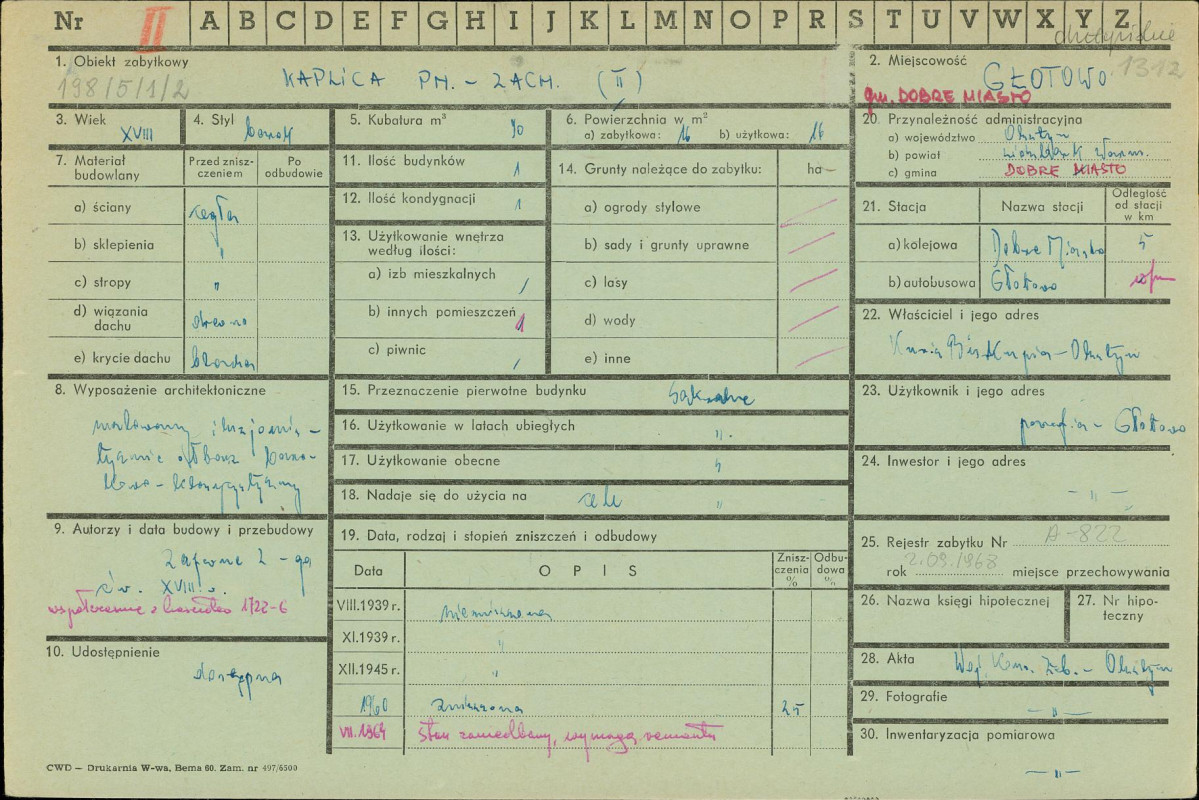 Nr II A B C D E F G H I J K L M N O P R S T U V W X Y Z
1. Obiekt zabytkowy
198/5/1/2
KAPLICA PN. - ZACH. (II)
2. Miejscowość
1312
GŁOTOWO
gm. DOBRE MIASTO
3. Wiek
XVIII
4. Styl
barok
5. Kubatura m³
90
6. Powierzchnia w m²
a) zabytkowa: 16 b) użytkowa: 16
20. Przynależność administracyjna
a) województwo Olsztyn
b) powiat Lidzbark Warm.
c) gmina DOBRE MIASTO
7. Materiał budowlany
Przed znisz-
czeniem
Po
odbudowie
a) ściany cegła
b) sklepienia "
c) stropy "
d) wiązania
dachu drewno
e) krycie dachu blacha
11. Ilość budynków 1
12. Ilość kondygnacji 1
13. Użytkowanie wnętrza
według ilości:
a) izb mieszkalnych /
b) innych pomieszczeń 1
c) piwnic /
14. Grunty należące do zabytku: ha
a) ogrody stylowe
b) sady i grunty uprawne
c) lasy
d) wody
e) inne
21. Stacja
Nazwa stacji
Odległość
od stacji
w km
a) kolejowa Dobre Miasto 5
b) autobusowa Głotowo
22. Właściciel i jego adres
Kuria Biskupia - Olsztyn
8. Wyposażenie architektoniczne
malowany iluzjonis-
tycznie ołtarz baro-
kowo-klasycystyczny
15. Przeznaczenie pierwotne budynku sakralne
16. Użytkowanie w latach ubiegłych "
17. Użytkowanie obecne "
18. Nadaje się do użycia na cele "
23. Użytkownik i jego adres
parafia - Głotowo
24. Inwestor i jego adres
- " -
9. Autorzy i data budowy i przebudowy
Zapewne 2-ga
ćw. XVIII w.
współczesne z kościołem 1722-6
19. Data, rodzaj i stopień zniszczeń i odbudowy
Data
OPIS
Znisz-
czenia
%
Odbu-
dowa
%
VIII.1939 r. niezniszczona
XI.1939 r. "
XII.1945 r. "
1960 zniszczona 25
VII.1964 stan zaniedbany, wymaga remontu
25. Rejestr zabytku Nr A-822
rok 2.09.1968 miejsce przechowywania
26. Nazwa księgi hipotecznej
27. Nr hipo-
teczny
10. Udostępnienie
dostępna
28. Akta Woj. Kons. Zab. - Olsztyn
29. Fotografie
- " -
30. Inwentaryzacja pomiarowa
- " -
CWD — Drukarnia W-wa, Bema 60. Zam. nr 497/6500